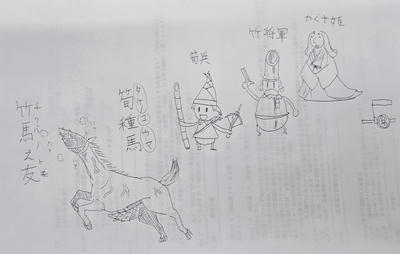 かぐや姫
竹将軍
筍兵
筍種馬
竹馬之友